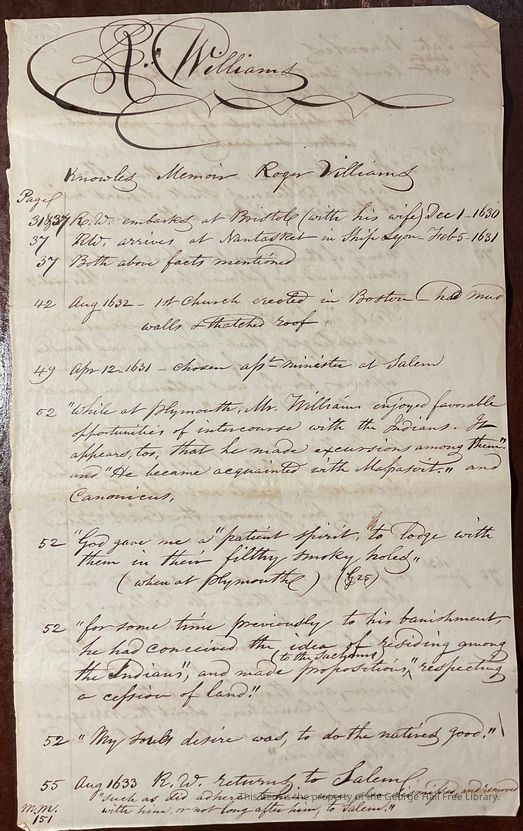 R. Williams
Knowles Memoir Roger Williams
Page
31&37 R.W. embarks at Bristol (with his wife) Dec 1-1630
37 RW. arrives at Nantasket in Ship Lyon Feb 5-1631
37 Both above facts mentioned
42 Aug 1632 - 1st Church erected in Boston - had mud
walls & thatched roof
49 Apr 12-1631 - chosen asst minister at Salem
52 "While at plymouth, Mr. Williams enjoyed favorable
opportunities of intercourse with the Indians. It
appears, too, that he made excursions among them".
and "He became acquainted with Massasoit." and
Canonicus,
52 "God gave me a "patient spirit, to lodge with
them in their filthy smoky holes,"
(when at plymouth) (G 25)
52 "for some time previously to his banishment,
he had conceived the idea of residing among
(to the Sachems)
the Indians", and made propositions," respecting
a cession of land."
52 "My souls desire was, to do the natives good."
55 Aug 1633 R.W. returns to Salem,
"such as did adhere to him and removed
This item is the property of the George Hail Free Library.
M.M. with him, or not long after him, to Salem."
151